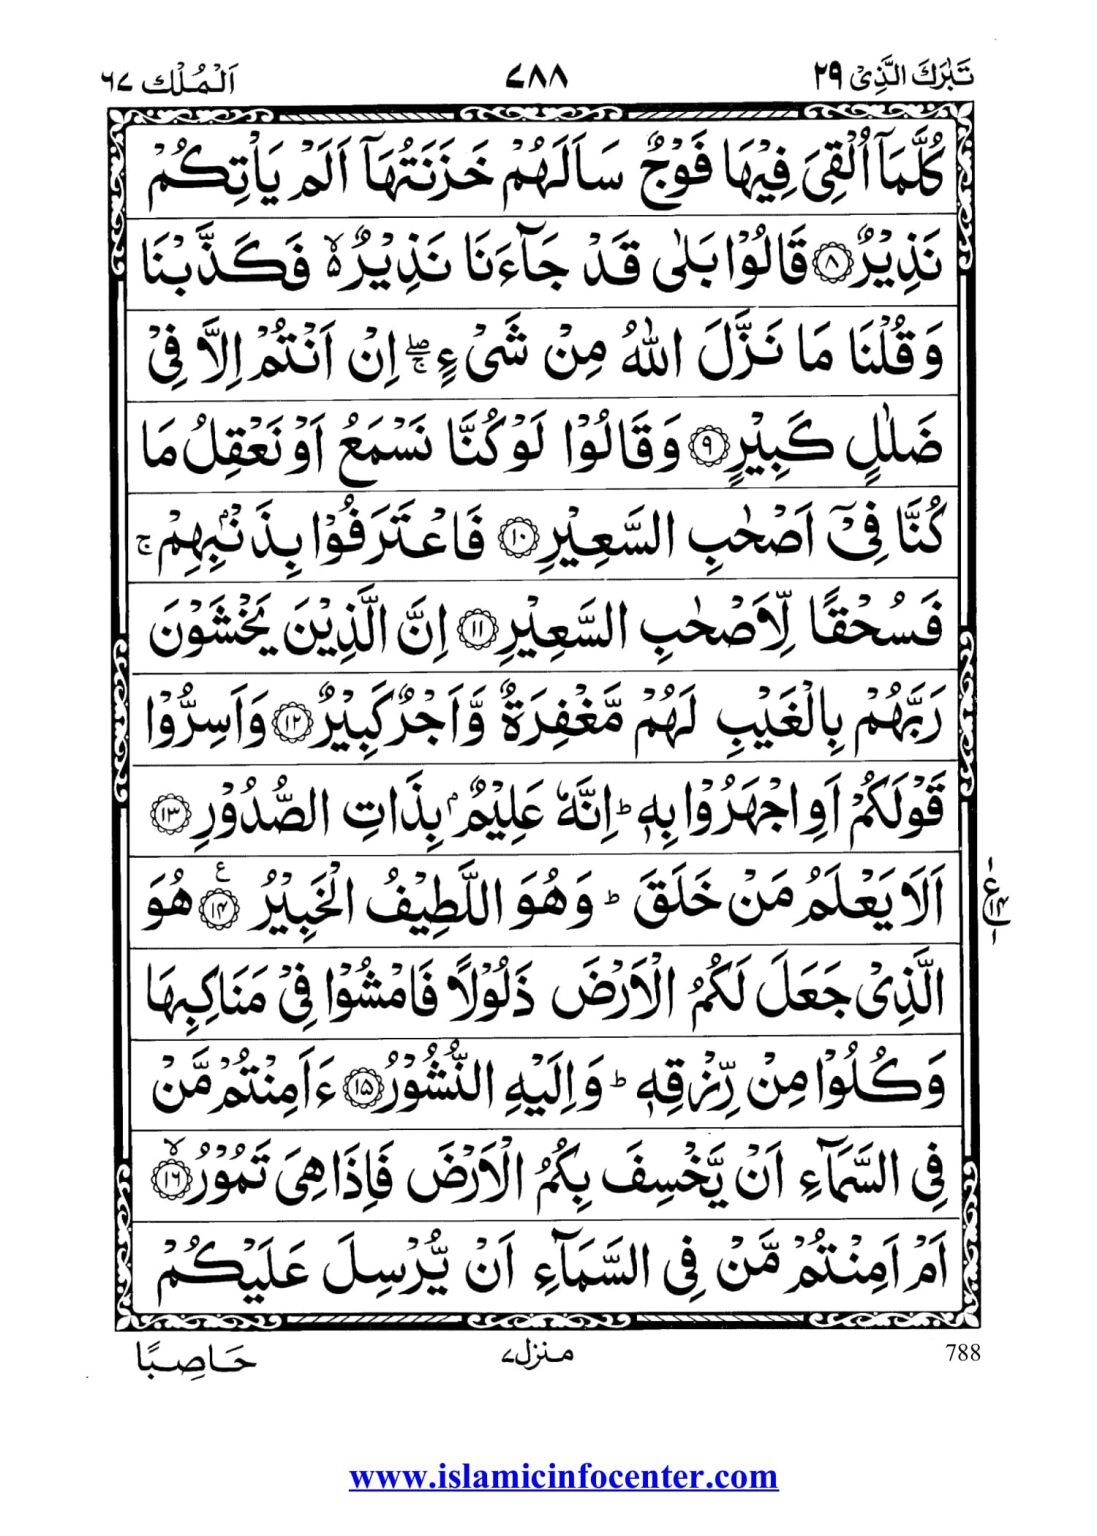 تَبٰرَكَ الَّذِىْ ٢٩
٧٨٨
اَلْمُلْك ٦٧
كُلَّمَاۤ اُلْقِىَ فِيْهَا فَوْجٌ سَاَلَهُمْ خَزَنَتُهَاۤ اَلَمْ يَاْتِكُمْ
نَذِيْرٌ ۝٨ قَالُوْا بَلٰى قَدْ جَآءَنَا نَذِيْرٌ ۙ۬ فَكَذَّبْنَا
وَقُلْنَا مَا نَزَّلَ اللّٰهُ مِنْ شَىْءٍ ۖۚ اِنْ اَنْتُمْ اِلَّا فِىْ
ضَلٰلٍ كَبِيْرٍ ۝٩ وَقَالُوْا لَوْ كُنَّا نَسْمَعُ اَوْ نَعْقِلُ مَا
كُنَّا فِىْۤ اَصْحٰبِ السَّعِيْرِ ۝١٠ فَاعْتَرَفُوْا بِذَنْۢبِهِمْ ۚ
فَسُحْقًا لِّاَصْحٰبِ السَّعِيْرِ ۝١١ اِنَّ الَّذِيْنَ يَخْشَوْنَ
رَبَّهُمْ بِالْغَيْبِ لَهُمْ مَّغْفِرَةٌ وَّاَجْرٌ كَبِيْرٌ ۝١٢ وَاَسِرُّوْا
قَوْلَكُمْ اَوِ اجْهَرُوْا بِهٖ ؕ اِنَّهٗ عَلِيْمٌۢ بِذَاتِ الصُّدُوْرِ ۝١٣
اَلَا يَعْلَمُ مَنْ خَلَقَ ؕ وَهُوَ اللَّطِيْفُ الْخَبِيْرُ ۝١٤ ع هُوَ
ع ١ ١٤ ١
الَّذِىْ جَعَلَ لَكُمُ الْاَرْضَ ذَلُوْلًا فَامْشُوْا فِىْ مَنَاكِبِهَا
وَكُلُوْا مِنْ رِّزْقِهٖ ؕ وَاِلَيْهِ النُّشُوْرُ ۝١٥ ءَاَمِنْتُمْ مَّنْ
فِى السَّمَآءِ اَنْ يَّخْسِفَ بِكُمُ الْاَرْضَ فَاِذَا هِىَ تَمُوْرُ ۙ۝١٦
اَمْ اَمِنْتُمْ مَّنْ فِى السَّمَآءِ اَنْ يُّرْسِلَ عَلَيْكُمْ
788
منزل ٧
حَاصِبًا
www.islamicinfocenter.com